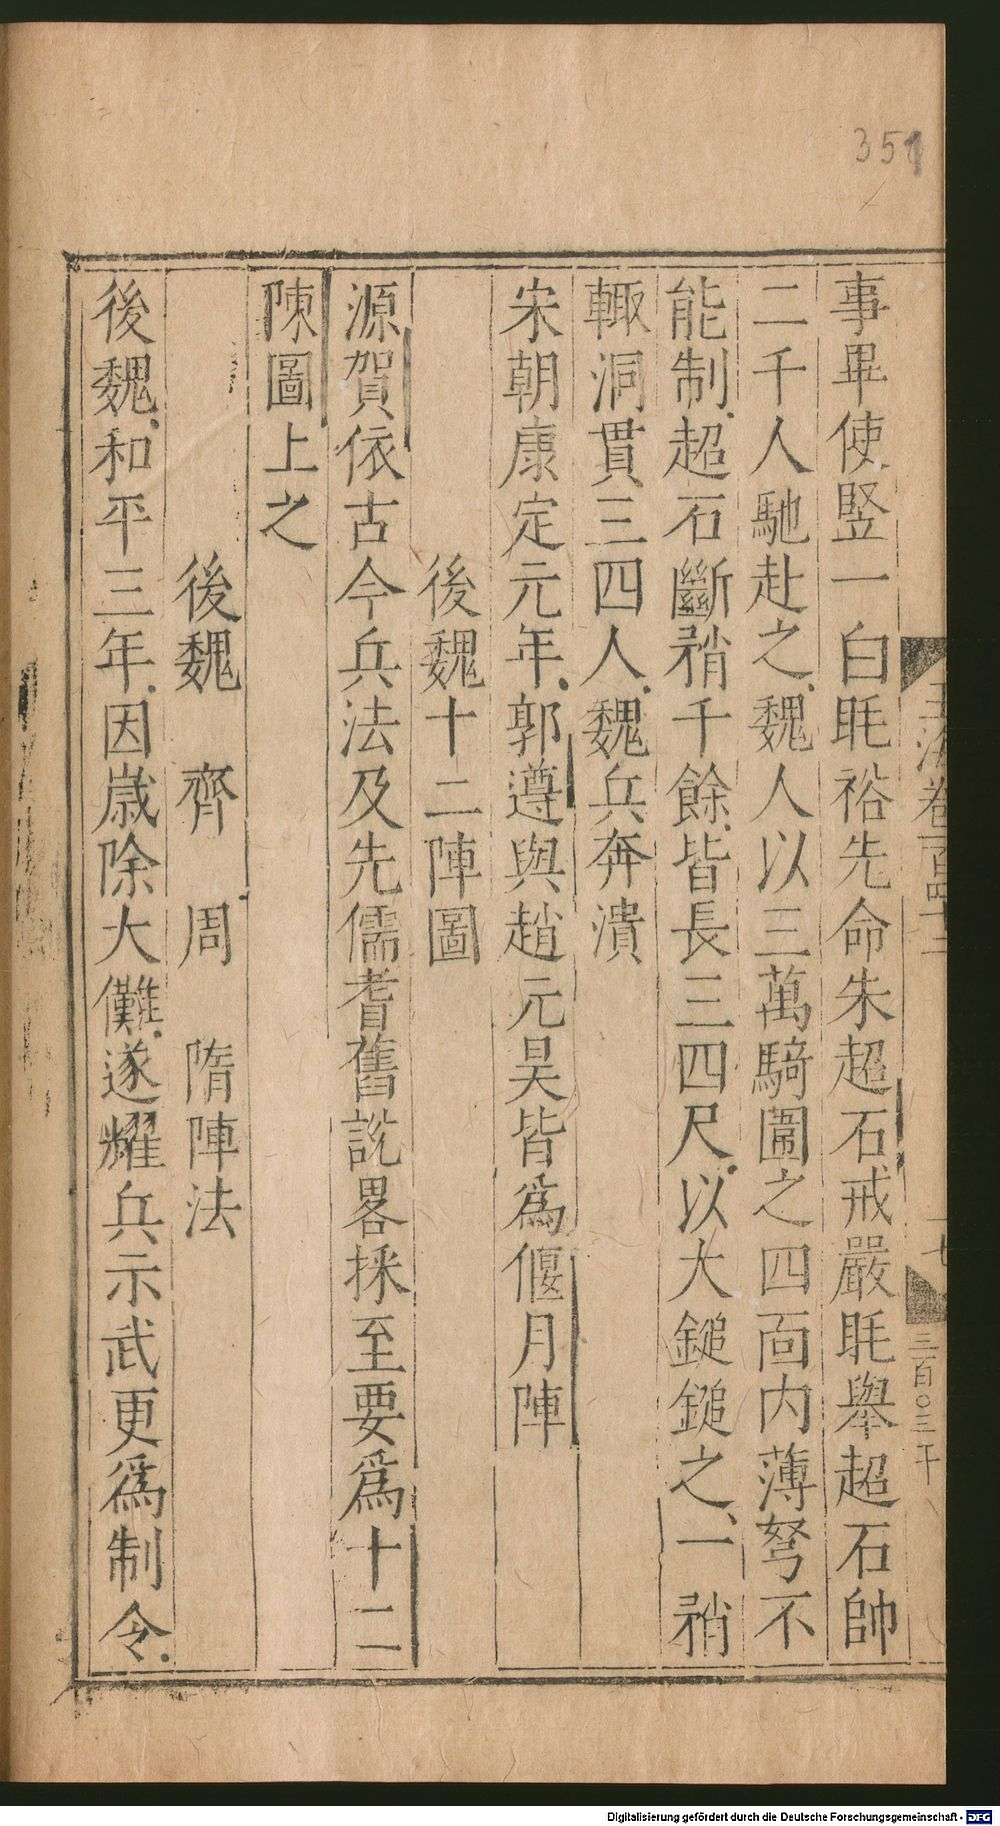 351
事畢使竪一白毦裕先命朱超石戒嚴毦舉超石帥
二千人馳赴之魏人以三萬騎圍之四面内薄弩不
能制超石斷矟千餘皆長三四尺以大鎚鎚之一矟
輙洞貫三四人魏兵奔潰
宋朝康定元年郭遵與趙元昊皆為偃月陣
後魏十二陣圖
源賀依古今兵法及先儒耆舊說畧採至要為十二
陳圖上之
後魏 齊 周 隋陣法
後魏和平三年因歲除大儺遂耀兵示武更為制令
玉海卷一百四十二
十七
三百〇三
Digitalisierung gefördert durch die Deutsche Forschungsgemeinschaft - DFG